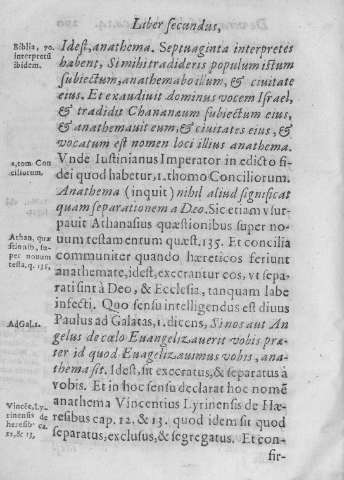 Liber secundus,
Biblia, 70.
interpretū
ibidem.
Idest, anathema. Septuaginta interpretes
habent, Si mihi tradideris populum istum
subiectum, anathemabo illum, & ciuitate
eius. Et exaudiuit dominus vocem Israel,
& tradidit Chananæum subiectum eius,
& anathemauit eum, & ciuitates eius, &
vocatum est nomen loci illius anathema.
1. tom. Con
ciliorum.
Vnde Iustinianus Imperator in edicto fi-
dei quod habetur, 1. thomo Conciliorum.
Anathema (inquit) nihil aliud significat
quam separationem a Deo. Sic etiam vsur-
pauit Athanasius quæstionibus super no-
Athan. quæ
stionib, su-
per nouum
testa. q. 135,
uum testamentum quæst. 135. Et concilia
communiter quando hæreticos feriunt
anathemate, idest, execrantur eos, vt sepa-
rati sint à Deo, & Ecclesia, tanquam labe
infecti. Quo sensu intelligendus est diuus
Ad Gal. 1.
Paulus ad Galatas, 1. dicens, Si nos aut An
gelus de cœlo Euangelizauerit vobis præ-
ter id quod Euagelizauimus vobis, ana-
thema sit. Idest, sit execratus, & separatus à
vobis. Et in hoc sensu declarat hoc nomē
Vincēt, Ly-
rinensis de
hæresib⁹ ca.
12, & 13,
anathema Vincentius Lyrinensis de Hæ-
resibus cap. 12. & 13. quod idem sit quod
separatus, exclusus, & segregatus. Et con-
fir-